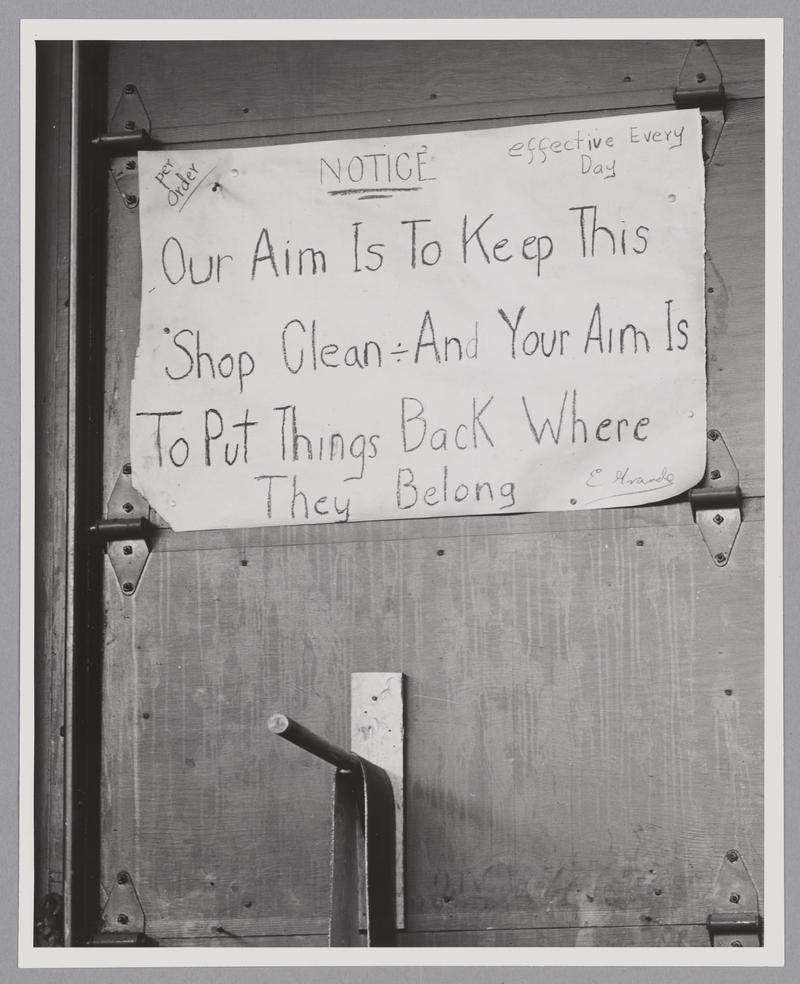 per
order
NOTICE
effective Every
Day
Our Aim Is To Keep This
Shop Clean ÷ And Your Aim Is
To Put Things Back Where
They Belong